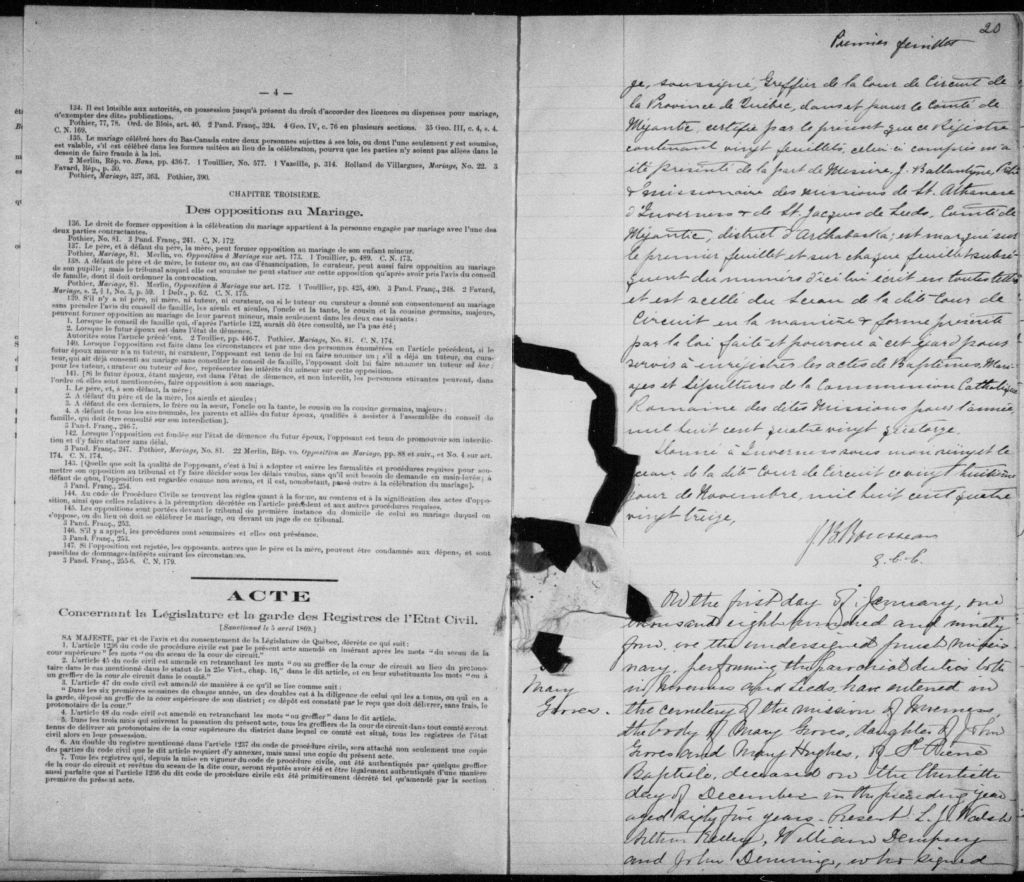 — 4 —
134. Il est loisible aux autorités, en possession jusqu'à présent du droit d'accorder des licences ou dispenses pour mariage,
d'exempter des dites publications.
Pothier, 77, 78. Ord. de Blois, art. 40. 2 Pand. Franç., 324. 4 Geo. IV, c. 76 en plusieurs sections. 35 Geo. III, c. 4, s. 4.
C. N. 169.
135. Le mariage célébré hors du Bas-Canada entre deux personnes sujettes à ses lois, ou dont l'une seulement y est soumise,
est valable, s'il est célébré dans les formes usitées au lieu de la célébration, pourvu que les parties n'y soient pas allées dans le
dessein de faire fraude à la loi.
2 Merlin, Rép. vo. Bans, pp. 436-7. 1 Touillier, No. 577. 1 Vazeille, p. 314. Rolland de Villargues, Mariage, No. 22. 3
Favard, Rép., p. 59.
Pothier, Mariage, 327, 363. Pothier, 390.
CHAPITRE TROISIÈME.
Des oppositions au Mariage.
136. Le droit de former opposition à la célébration du mariage appartient à la personne engagée par mariage avec l'une des
deux parties contractantes.
Pothier, No. 81. 3 Pand. Franç., 241. C. N. 172.
137. Le père, et à défaut du père, la mère, peut former opposition au mariage de son enfant mineur.
Pothier, Mariage, 81. Merlin, vo. Opposition à Mariage sur art. 173. 1 Touillier, p. 489. C. N. 173.
138. A défaut de père et de mère, le tuteur ou, au cas d'émancipation, le curateur, peut aussi faire opposition au mariage
de son pupille; mais le tribunal auquel elle est soumise ne peut statuer sur cette opposition qu'après avoir pris l'avis du conseil
de famille, dont il doit ordonner la convocation.
Pothier, Mariage, 81. Merlin, Opposition à Mariage sur art. 172. 1 Touillier, pp. 425, 490. 3 Pand. Franç., 248. 2 Favard,
Mariage, s. 2, § 1, No. 3, p. 59. 1 Delv., p. 62. C. N. 175.
139. S'il n'y a ni père, ni mère, ni tuteur, ni curateur, ou si le tuteur ou curateur a donné son consentement au mariage
sans prendre l'avis du conseil de famille, les aïeuls et aïeules, l'oncle et la tante, le cousin et la cousine germains, majeurs,
peuvent former opposition au mariage de leur parent mineur, mais seulement dans les deux cas suivants:
1. Lorsque le conseil de famille qui, d'après l'article 122, aurait dû être consulté, ne l'a pas été;
2. Lorsque le futur époux est dans l'état de démence.
Autorités sous l'article précédent. 2 Touillier, pp. 446-7. Pothier, Mariage, No. 81. C. N. 174.
140. Lorsque l'opposition est faite dans les circonstances et par une des personnes énumérées en l'article précédent, si le
futur époux mineur n'a ni tuteur, ni curateur, l'opposant est tenu de lui en faire nommer un; s'il a déjà un tuteur, ou cura-
teur, qui ait déjà consenti au mariage sans consulter le conseil de famille, l'opposant doit lui faire nommer un tuteur ad hoc;
pour les tuteur, curateur ou tuteur ad hoc, représenter les intérêts du mineur sur cette opposition.
141. [Si le futur époux, étant majeur, est dans l'état de démence, et non interdit, les personnes suivantes peuvent, dans
l'ordre où elles sont mentionnées, faire opposition à son mariage.
1. Le père, et, à son défaut, la mère;
2. A défaut du père et de la mère, les aïeuls et aïeules;
3. A défaut de ces derniers, le frère ou la sœur, l'oncle ou la tante, le cousin ou la cousine germains, majeurs:
4. A défaut de tous les sus-nommés, les parents et alliés du futur époux, qualifiés à assister à l'assemblée du conseil de
famille, qui doit être consulté sur son interdiction].
3 Pand. Franç., 246-7.
142. Lorsque l'opposition est fondée sur l'état de démence du futur époux, l'opposant est tenu de promouvoir son interdic-
tion et d'y faire statuer sans délai.
3 Pand. Franç., 247. Pothier, Mariage, No. 81. 22 Merlin, Rép. vo. Opposition au Mariage, pp. 88 et suiv., et No. 4 sur art.
174. C. N. 174.
143. [Quelle que soit la qualité de l'opposant, c'est à lui à adopter et suivre les formalités et procédures requises pour sou-
mettre son opposition au tribunal et l'y faire décider sous les délais voulus, sans qu'il soit besoin de demande en main-levée; à
défaut de quoi, l'opposition est regardée comme non avenu, et il est, nonobstant, passé outre à la célébration du mariage].
3 Pand. Franç., 254.
144. Au code de Procédure Civile se trouvent les règles quant à la forme, au contenu et à la signification des actes d'oppo-
sition, ainsi que celles relatives à la péremption décrétée en l'article précédent et aux autres procédures requises.
145. Les oppositions sont portées devant le tribunal de première instance du domicile de celui au mariage duquel on
s'oppose, ou du lieu où doit se célébrer le mariage, ou devant un juge de ce tribunal.
3 Pand. Franç., 253.
146. S'il y a appel, les procédures sont sommaires et elles ont préséance.
3 Pand. Franç., 253.
147. Si l'opposition est rejetée, les opposants, autres que le père et la mère, peuvent être condamnés aux dépens, et sont
passibles de dommages-intérêts suivant les circonstances.
3 Pand. Franç., 255-6. C. N. 179.
ACTE
Concernant la Législature et la garde des Registres de l'Etat Civil.
[Sanctionné le 5 avril 1869.]
SA MAJESTÉ, par et de l'avis et du consentement de la Législature de Québec, décrète ce qui suit:
1. L'article 1236 du code de procédure civile est par le présent acte amendé en insérant après les mots "du sceau de la
cour supérieure" les mots "ou du sceau de la cour de circuit."
2. L'article 45 du code civil est amendé en retranchant les mots "ou au greffier de la cour de circuit au lieu du protono-
taire dans le cas mentionné dans le statut de la 25e Vict., chap. 16," dans le dit article, et en leur substituants les mots "ou à
un greffier de la cour de circuit dans le comté."
3. L'article 47 du code civil est amendé de manière à ce qu'il se lise comme suit:
"Dans les six premières semaines de chaque année, un des doubles est à la diligence de celui qui les a tenus, ou qui en a
la garde, déposé au greffe de la cour supérieure de son district; ce dépôt est constaté par le reçu que doit délivrer, sans frais, le
protonotaire de la cour."
4. L'article 48 du code civil est amendé en retranchant les mots "au greffier" dans le dit article.
5. Dans les trois mois qui suivront la passation du présent acte, tous les greffiers de la cour de circuit dans tout comté seront
tenus de délivrer au protonotaire de la cour supérieure du district dans lequel ce comté est situé, tous les registres de l'état
civil alors en leur possession.
6. Au double du registre mentionné dans l'article 1237 du code de procédure civile, sera attaché non seulement une copie
des parties du code civil que le dit article requiert d'y annexer, mais aussi une copie du présent acte.
7. Tous les registres qui, depuis la mise en vigueur du code de procédure civile, ont été authentiqués par quelque greffier
de la cour de circuit et revêtus du sceau de la dite cour, seront réputés avoir été et être légalement authentiqués d'une manière
aussi parfaite que si l'article 1236 du dit code de procédure civile eût été primitivement décrété tel qu'amendé par la section
première du présent acte.
20
Premier feuillet
Je, soussigné, Greffier de la Cour de Circuit de
la Province de Québec, dans et pour le Comté de
Mégantic, certifie par le présent que ce Régistre
contenant vingt feuillets, celui-ci compris m'a
été présenté de la part de Messire, J. Ballantyne, Ptre
& Missionaire des missions de St. Athanase
d'Inverness & de St. Jacques de Leeds, Comté de
Mégantic, district d'Arthabaska; est marqué sur
le premier feuillet et sur chaque feuillet subsé-
quent du numéro d'icelui écrit en toutes lettres
et est scellé du Sceau de la dite Cour de
Circuit en la manière & forme prescrite
par la loi faite et pourvue à cet égard pour
servir à enregistrer les actes de Baptêmes, Mari-
ages et Sépultures de la Communion Catholique
Romaine des dites Missions pour l'année
mil huit cent quatre vingt quatorze.
Donné à Inverness sous mon seing et le
sceau de la dite Cour de Circuit ce vingt huitième
jour de Novembre, mil huit cent quatre
vingt treize,
J B Rousseau
G. C. C.
Mary
Groves.
On the first day of January, one
thousand eight hundred and ninety
four, we the undersigned priest mission
nary, performing the parochial duties both
in Inverness and Leeds, have entered in
the cemetery of the mission of Inverness
the body of Mary Groves, daughter of John
Groves and Mary Hughes, of St Pierre
Baptiste, deceased on the thirtieth
day of December in the preceding year
aged sixty five years. Present L. J. Walsh
Arthur Kelley, William Dempsey
and John Demming, who signed